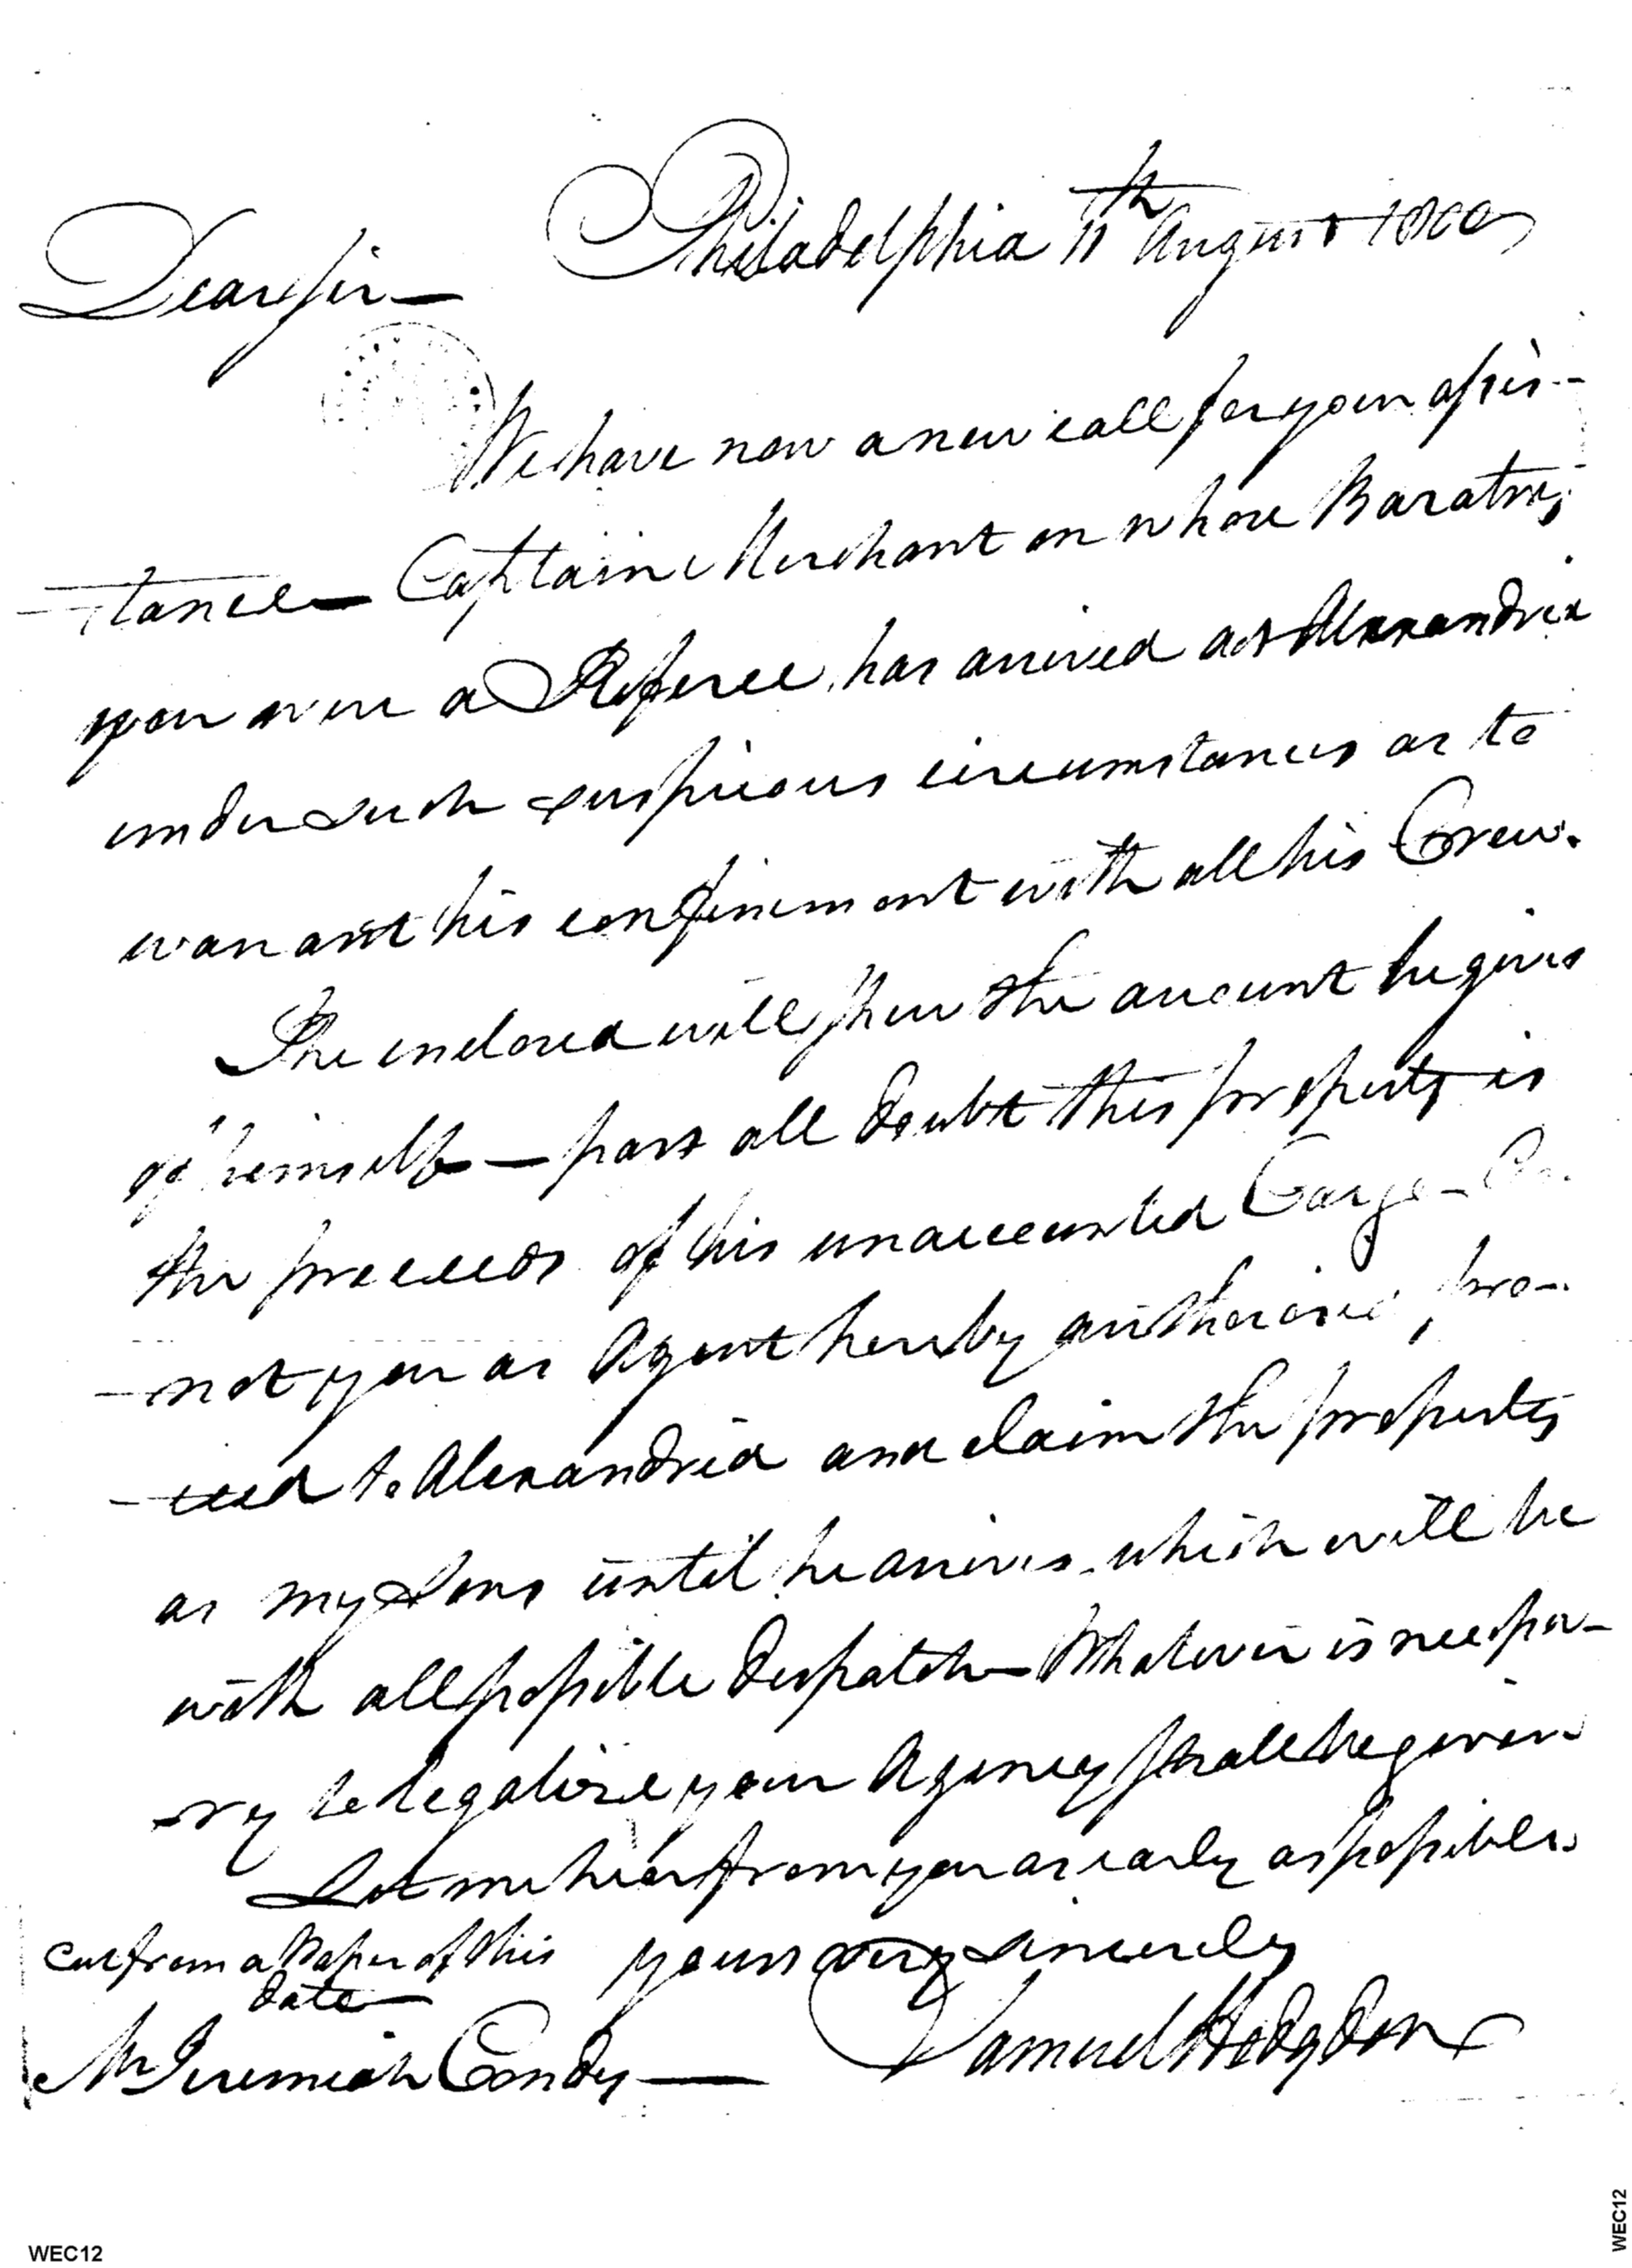 Philadelphia 11th August 1800
Dear Sir—
We have now a new call for your assis-
-tance— Captain Merchant on whose Baratry
you were a Referee, has arrived at Alexandria
under such suspicious circumstances as to
warrant his confinement with all his Crew.
The enclosed will shew the account he gives
of himself— past all doubt this property is
the proceeds of his unaccounted Cargo—
-not you as Agent hereby authorised, pro-
-ceed to Alexandria and claim the property
as my Sons until he arrives, which will be
with all possible despatch— Whatever is necessa-
-ry to legalize your Agency shall be given
Let me hear from you as early as possible.
yours very sincerely
Samuel Hodgdon
Cut from a Paper of this
date—
Mr Jeremiah Condy—
WEC12
WEC12